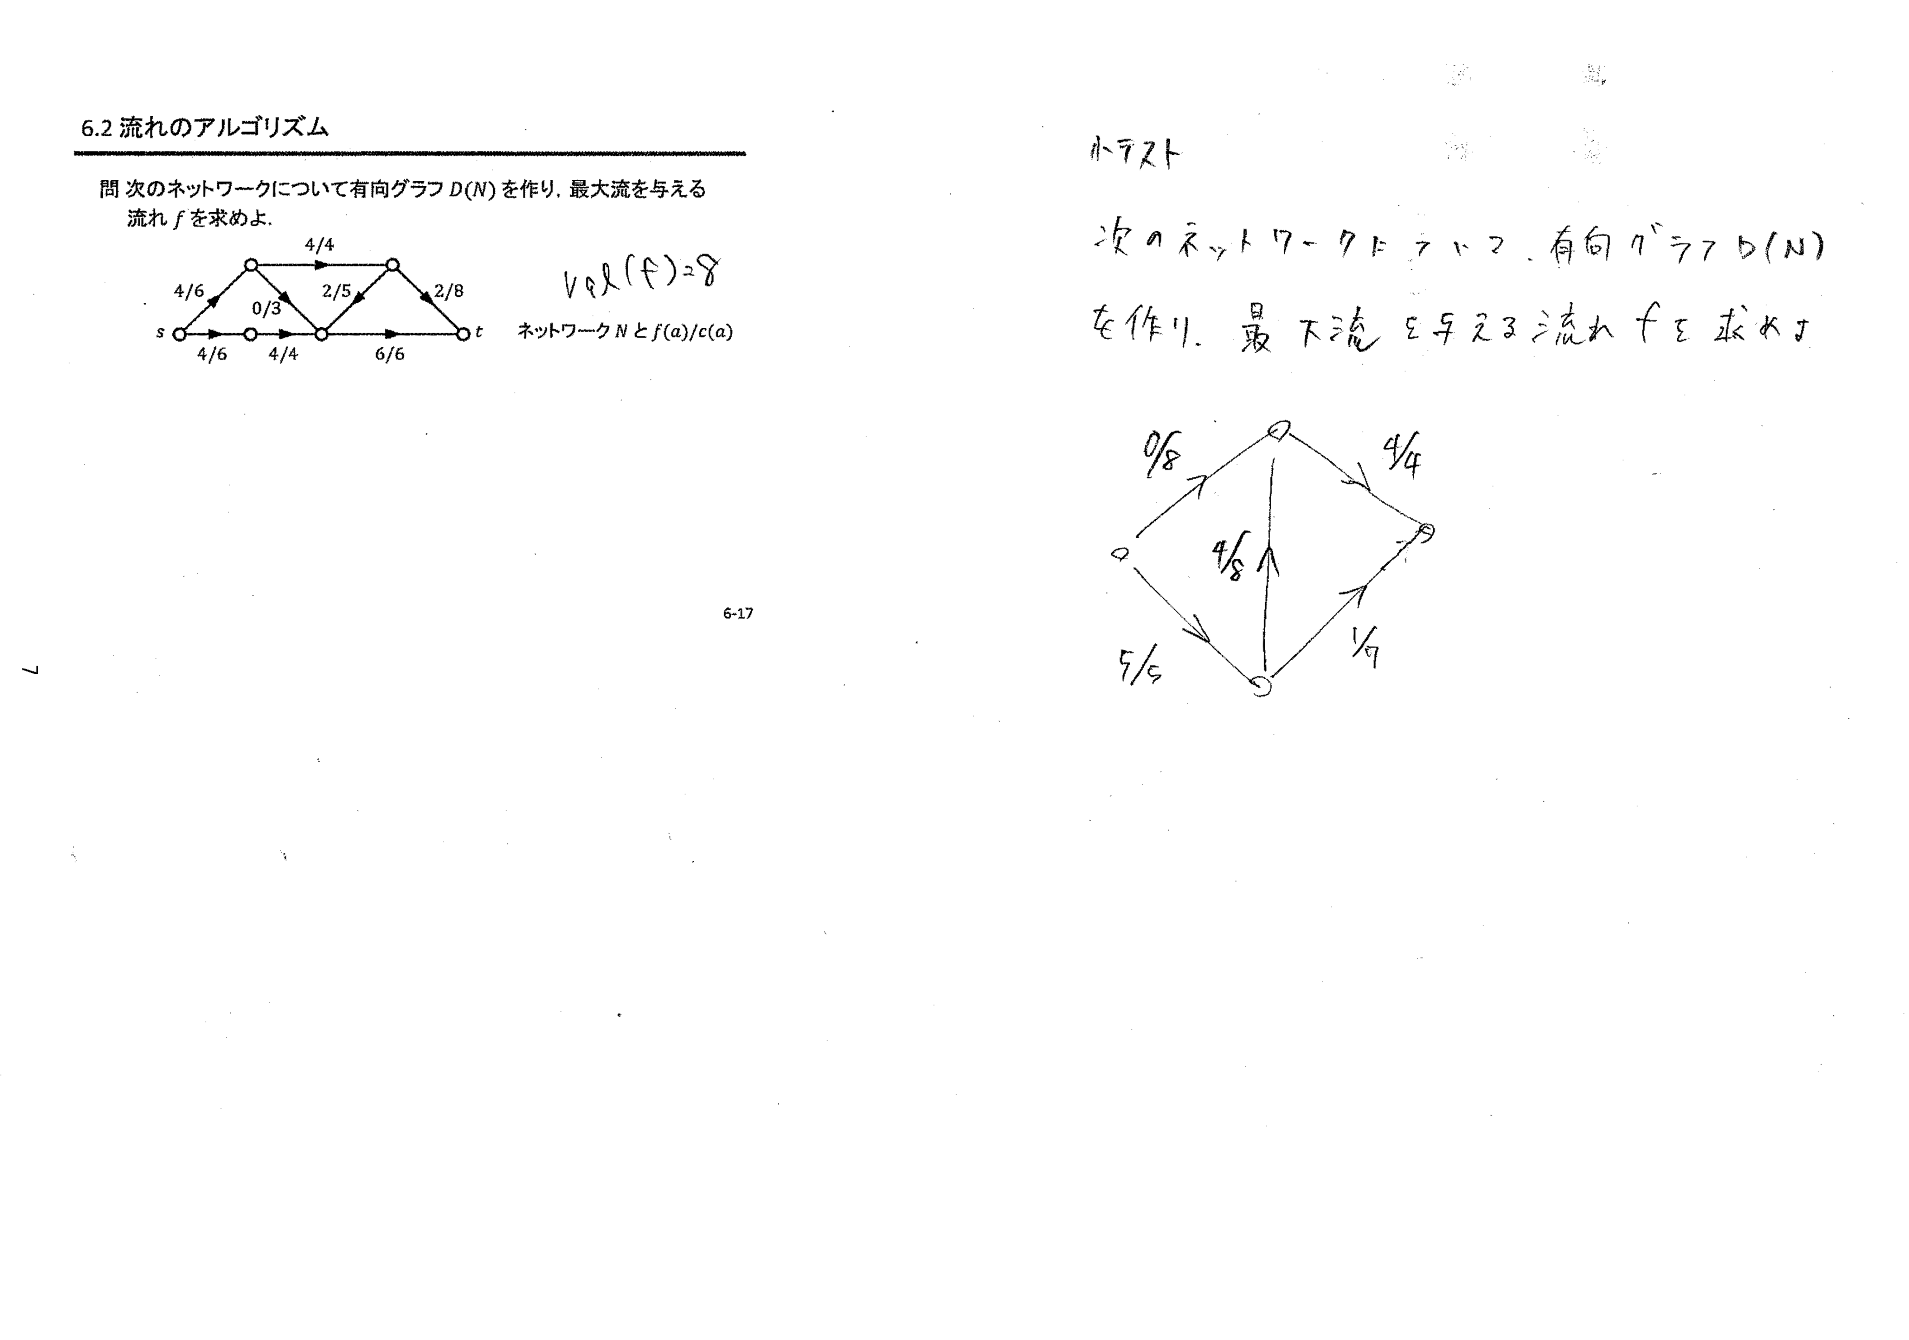 6.2 流れのアルゴリズム
問 次のネットワークについて有向グラフ D(N) を作り, 最大流を与える
流れ f を求めよ.
4/4
4/6
0/3
2/5
2/8
val(f)=8
s
t
ネットワーク N と f(a)/c(a)
4/6
4/4
6/6
6-17
7
小テスト
次のネットワークについて、有向グラフ D(N)
を作り、最大流を与える流れ fを求めよ
0/8
4/4
4/8
5/5
1/7